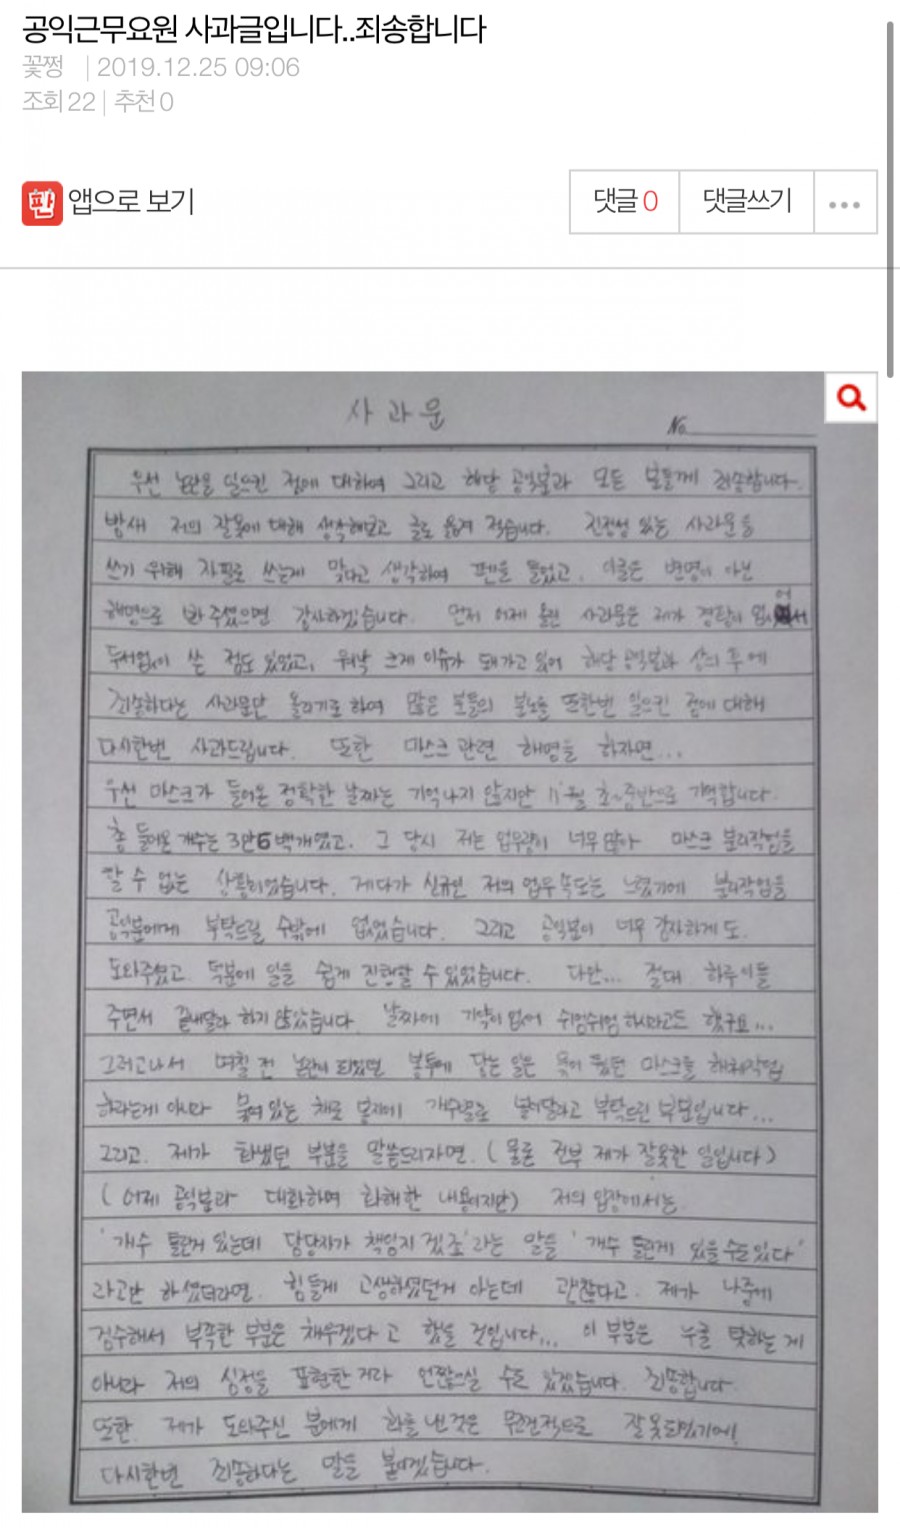 공익근무요원 사과글입니다..죄송합니다
꽃쩡 | 2019.12.25 09:06
조회 22 | 추천 0
판 앱으로 보기
댓글 0 댓글쓰기 •••
사과문
No.
우선 논란을 일으킨 점에 대하여 그리고 해당 공익분과 모든 분들께 죄송합니다.
밤새 저의 잘못에 대해 생각해보고 글로 옮겨 적습니다. 진정성 있는 사과문을
쓰기 위해 자필로 쓰는게 맞다고 생각하여 펜을 들었고, 이글은 변명이 아닌
해명으로 봐주셨으면 감사하겠습니다. 먼저 어제 올린 사과문은 제가 경황이 없어서
두서없이 쓴 점도 있었고, 워낙 크게 이슈가 돼가고 있어 해당 공익분과 상의 후에
죄송하다는 사과문만 올리기로 하여 많은 분들의 분노를 또한번 일으킨 점에 대해
다시한번 사과드립니다. 또한 마스크 관련 해명을 하자면...
우선 마스크가 들어온 정확한 날짜는 기억나지 않지만 11월 초~중반으로 기억합니다.
총 들어온 개수는 3만6백개였고. 그 당시 저는 업무량이 너무 많아 마스크 분리작업을
할 수 없는 상황이었습니다. 게다가 신규인 저의 업무 속도는 느렸기에 분리작업을
공익분에게 부탁드릴 수밖에 없었습니다. 그리고 공익분이 너무 감사하게도.
도와주셨고. 덕분에 일을 쉽게 진행할 수 있었습니다. 다만... 절대 하루이틀
주면서 끝내달라 하지 않았습니다. 날짜에 기약이 없어 쉬엄쉬엄 하시라고도 했구요...
그러고나서 며칠 전 논란이 되었던 봉투에 담는 일은 묶여 있던 마스크를 해체작업
하라는게 아니라 묶여 있는 채로 봉지에 개수별로 넣어달라고 부탁드린 부분입니다...
그리고. 제가 화냈던 부분을 말씀드리자면. (물론 전부 제가 잘못한 일입니다)
(어제 공익분과 대화하여 화해한 내용이지만) 저의 입장에서는
'개수 틀린거 있는데 담당자가 책임지겠죠'라는 말을 '개수 틀린게 있을 수도 있다'
라고만 하셨더라면. 힘들게 고생하셨던거 아는데 괜찮다고. 제가 나중에
검수해서 부족한 부분은 채우겠다고 했을 것입니다... 이 부분은 누굴 탓하는 게
아니라 저의 심정을 표현한 거라 언짢으실 수도 있겠습니다. 죄송합니다.
또한. 제가 도와주신 분에게 화를 낸것은 무조건적으로 잘못되었기에!
다시한번 죄송하다는 말을 붙이겠습니다.